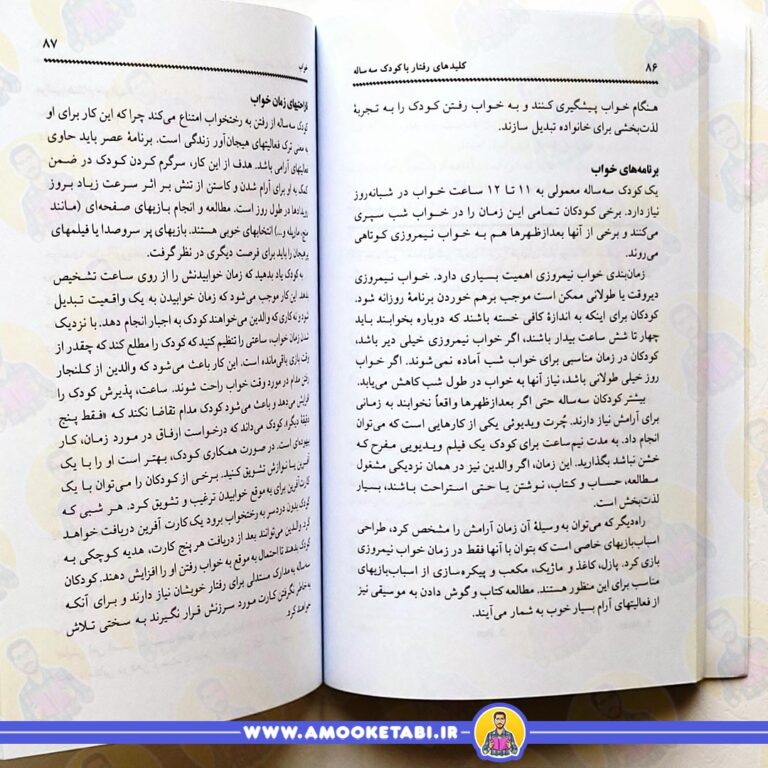 ۸۶
کلیدهای رفتار با کودک سه ساله
هنگام خواب پیشگیری کنند و به خواب رفتن کودک را به تجربهٔ
لذت‌بخشی برای خانواده تبدیل سازند.
برنامه‌های خواب
یک کودک سه‌ساله معمولی به ۱۱ تا ۱۲ ساعت خواب در شبانه‌روز
نیاز دارد. برخی کودکان تمامی این زمان را در خواب شب سپری
می‌کنند و برخی از آنها بعدازظهرها هم به خواب نیمروزی کوتاهی
می‌روند.
زمان‌بندی خواب نیمروزی اهمیت بسیاری دارد. خواب نیمروزی
دیروقت یا طولانی ممکن است موجب برهم خوردن برنامهٔ روزانه شود.
کودکان برای اینکه به اندازهٔ کافی خسته باشند که دوباره بخوابند باید
چهار تا شش ساعت بیدار باشند، اگر خواب نیمروزی خیلی دیر باشد،
کودکان در زمان مناسبی برای خواب شب آماده نمی‌شوند. اگر خواب
روز خیلی طولانی باشد، نیاز آنها به خواب در طول شب کاهش می‌یابد.
بیشتر کودکان سه‌ساله حتی اگر بعدازظهرها واقعاً نخوابند به زمانی
برای آرامش نیاز دارند. چُرت ویدئوئی یکی از کارهایی است که می‌توان
انجام داد. به مدت نیم‌ساعت برای کودک یک فیلم ویدیویی مفرح که
خشن نباشد بگذارید. این زمان، اگر والدین نیز در همان نزدیکی مشغول
مطالعه، حساب و کتاب، نوشتن یا حتی استراحت باشند، بسیار
لذت‌بخش است.
راه‌دیگر که می‌توان به‌وسیلهٔ آن زمان آرامش را مشخص کرد، طراحی
اسباب‌بازیهای خاصی است که بتوان با آنها فقط در زمان خواب نیمروزی
بازی کرد. پازل، کاغذ و ماژیک، مکعب و پیکره‌سازی از اسباب‌بازیهای
مناسب برای این منظور هستند. مطالعه کتاب و گوش دادن به موسیقی نیز
از فعالیتهای آرام بسیار خوب به شمار می‌آیند.
خواب
۸۷
ناراحتیهای زمان خواب
کودک سه‌ساله از رفتن به رختخواب امتناع می‌کند چرا که این کار برای او
به معنی ترک فعالیتهای هیجان‌آور زندگی است. برنامهٔ عصر باید حاوی
فعالیتهای آرامی باشد. هدف از این کار، سرگرم کردن کودک در ضمن
کمک به او برای آرام شدن و کاستن از تنش بر اثر سرعت زیاد بروز
رویدادها در طول روز است. مطالعه و انجام بازیهای صفحه‌ای (مانند
منچ، مارپله و...) انتخابهای خوبی هستند. بازیهای پر سروصدا یا فیلمهای
پرهیجان را باید برای فرصت دیگری در نظر گرفت.
به کودک یاد بدهید که زمان خوابیدنش را از روی ساعت تشخیص
بدهد. این کار موجب می‌شود که زمان خوابیدن به یک واقعیت تبدیل
شود و نه کاری که والدین می‌خواهند کودک به اجبار انجام دهد. با نزدیک
شدن زمان خواب، ساعتی را تنظیم کنید که کودک را مطلع کند که چقدر از
وقت بازی باقی‌مانده است. این کار باعث می‌شود که والدین از کلنجار
رفتن مدام در مورد وقت خواب راحت شوند. ساعت، پذیرش کودک را
افزایش می‌دهد و باعث می‌شود کودک مدام تقاضا نکند که «فقط پنج
دقیقهٔ دیگر». کودک می‌داند که درخواست ارفاق در مورد زمان، کار
بیهوده‌ای است. در صورت همکاری کودک، بهتر است او را با یک
آفرین یا نوازش تشویق کنید. برخی از کودکان را می‌توان با یک
کارت آفرین برای به موقع خوابیدن ترغیب و تشویق کرد. هر شبی که
کودک بدون دردسر به رختخواب برود یک کارت آفرین دریافت خواهد
کرد. والدین می‌توانند بعد از دریافت هر پنج کارت، هدیه کوچکی به
کودک بدهند تا احتمال به موقع به خواب رفتن او را افزایش دهند. کودکان
سه‌ساله به مدارک مستدلی برای رفتار خویشان نیاز دارند و برای آنکه
به خاطر نگرفتن کارت مورد سرزنش قرار نگیرند به سختی تلاش
خواهند کرد.
WWW.AMOOKETABI.IR